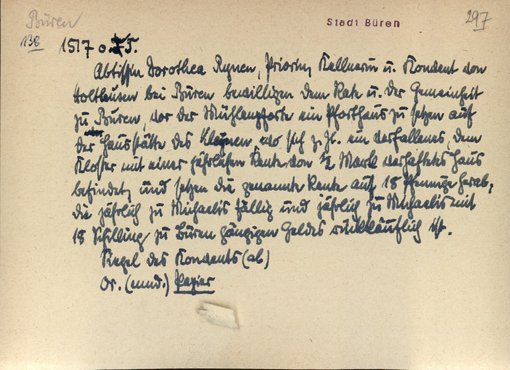 Büren
Stadt Büren
297
136
1517 o. T.
Äbtissin Dorothea Rynen, Priorin, Kellnerin u. Konvent von
Holthausen bei Büren bewilligen dem Rate u. der Gemeinheit
zu Büren, vor der Mühlenpforte ein Pforthaus zu setzen auf
der Hausstätte des, wo sich z. Zt. ein verfallenes, dem
Kloster mit einer jährlichen Rente von ½ Mark verhaftetes Haus
befindet, und setzen die genannte Rente auf 18 Pfennige herab,
die jährlich zu Michaelis fällig und jährlich zu Michaelis mit
18 Schilling zu Büren gängigen Geldes rückkäuflich ist.
Siegel des Konvents (ab)
Or. (mnd.) Papier